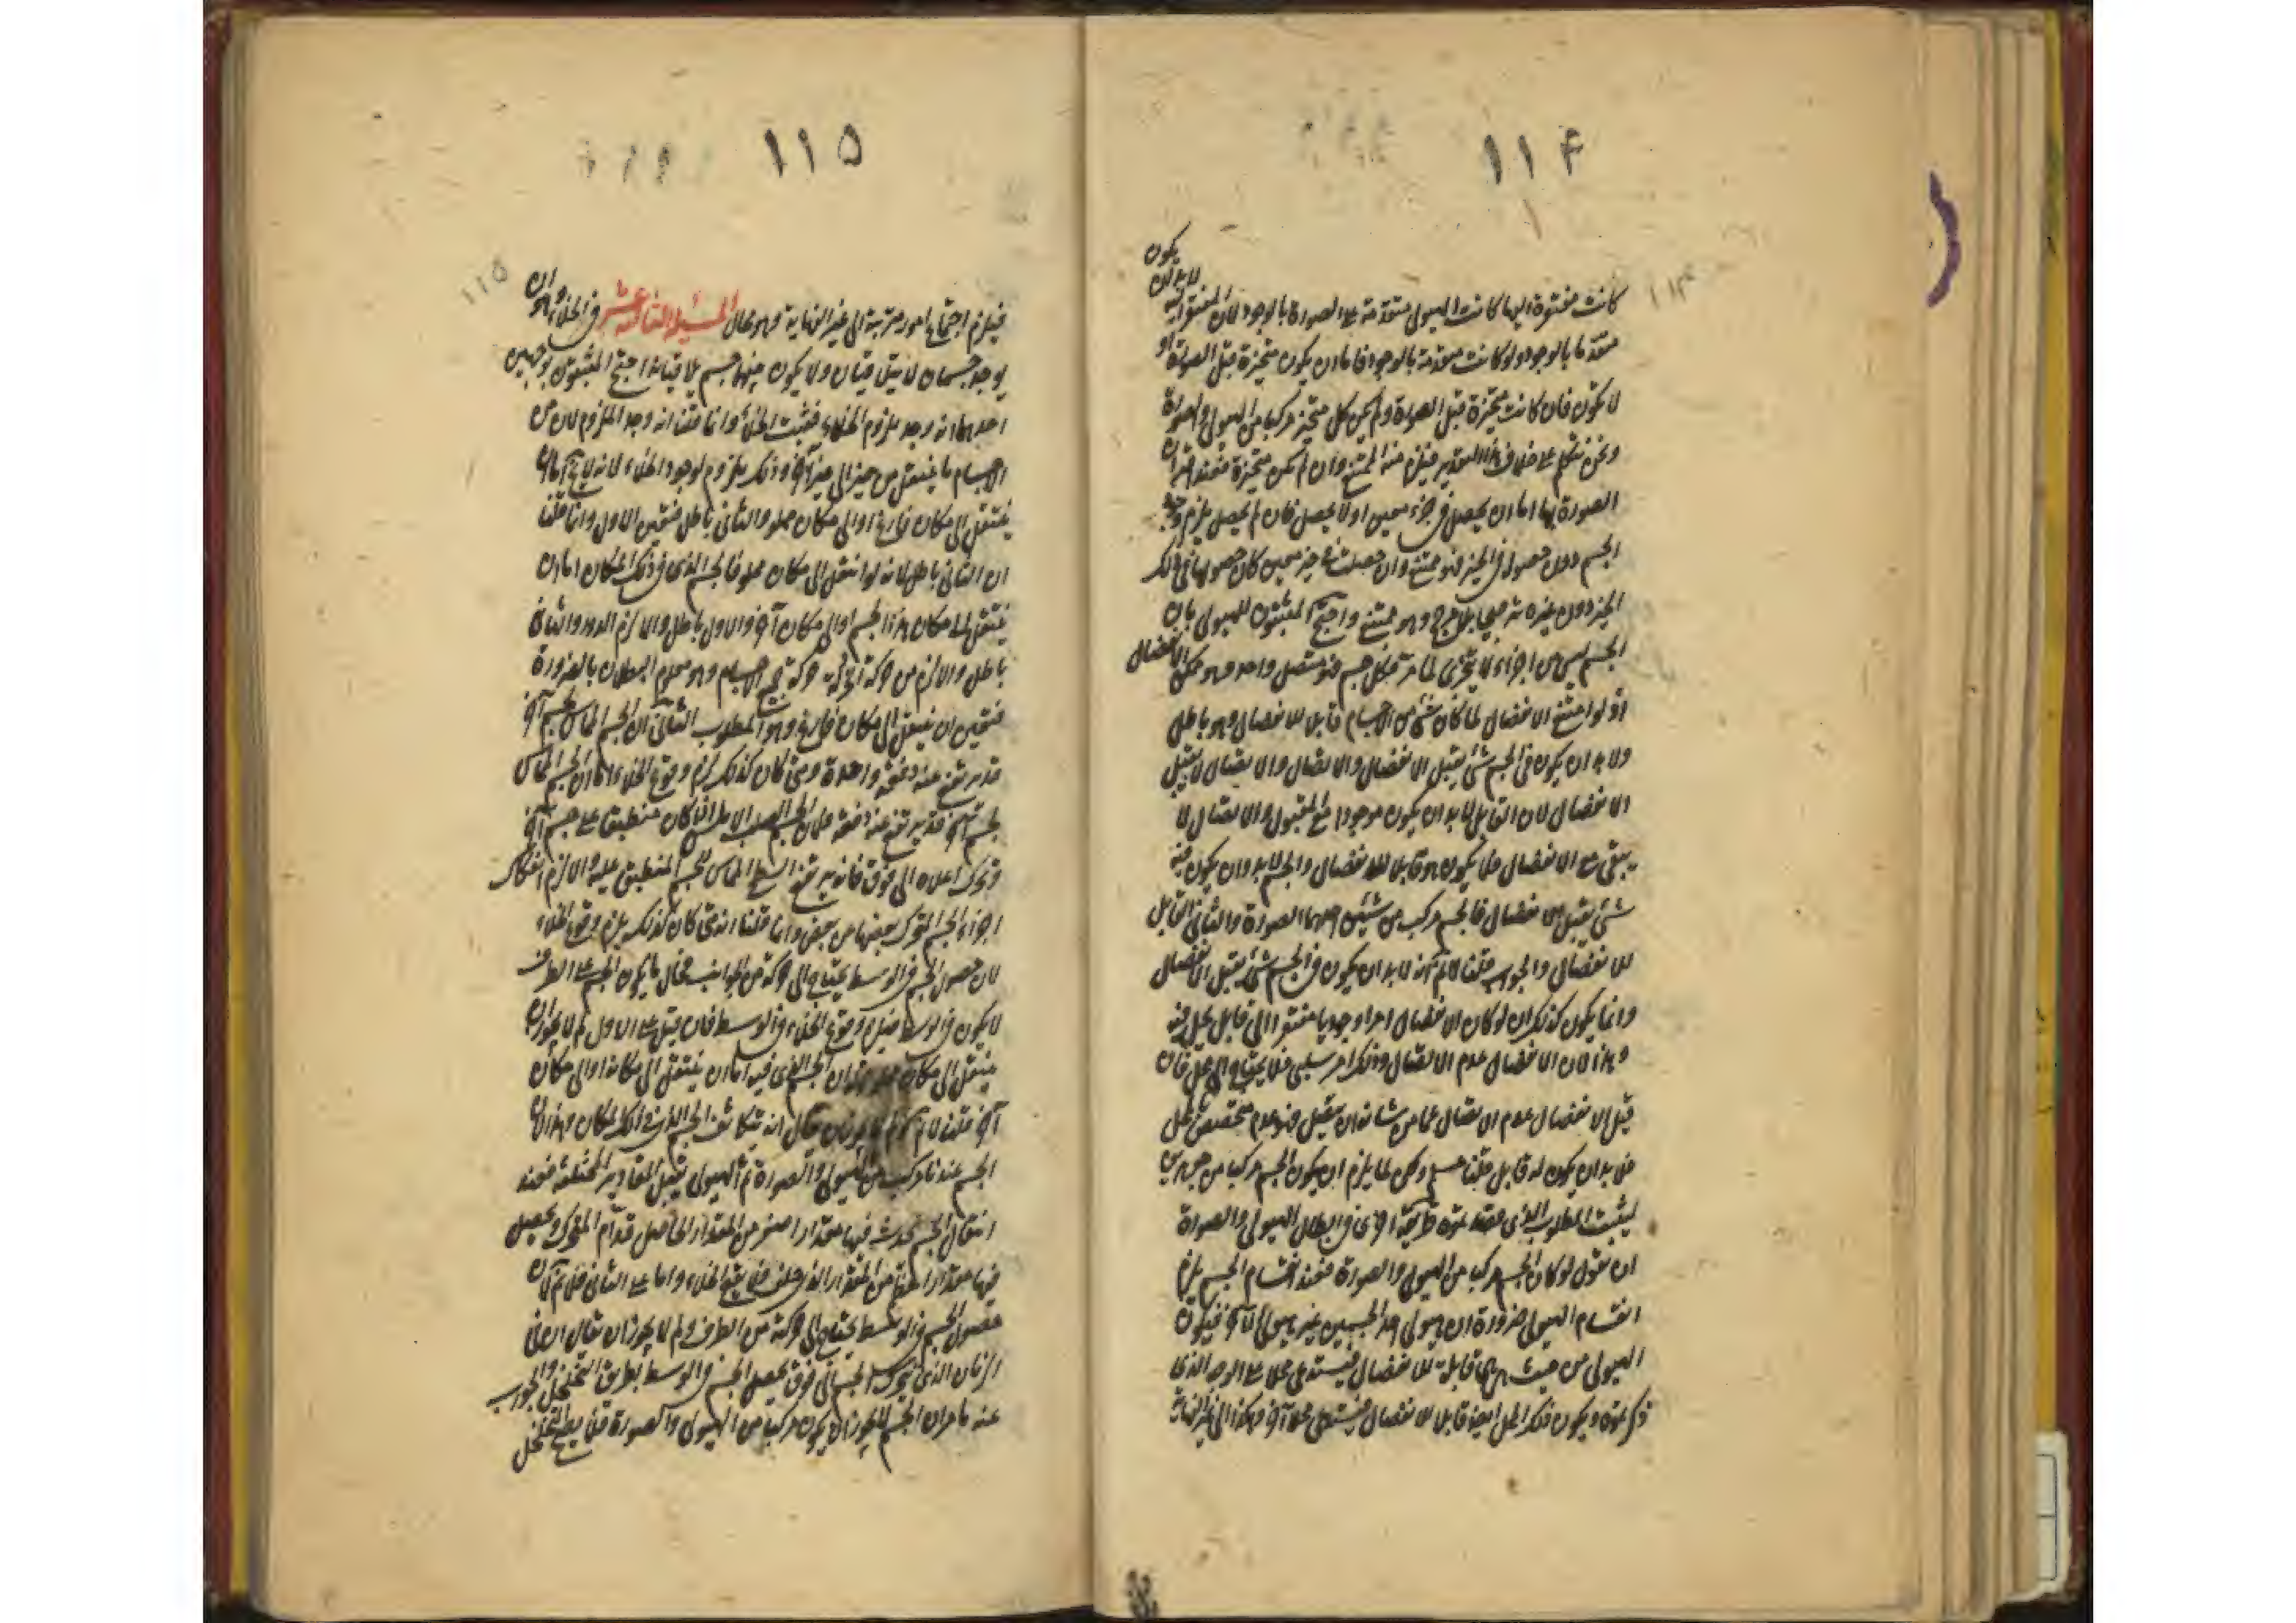 ۱۱۴
كانت مفتقرة اليها كانت الهيولى متقدمة على الصورة بالوجود لان المفتقر اليه لا بد ان يكون
متقدما بالوجود ولو كانت متقدمة بالوجود فاما ان يكون متحيزة قبل الصورة او
لا تكون فان كانت متحيزة قبل الصورة ولم يكن كل متحيز مركبا من الهيولى والصورة
ونحن نتكلم على خلاف هذا التقدير فيلزم منه الممتنع وان لم تكن متحيزة فعند اقتران
الصورة بها اما ان يحصل في جزء معين او لا يحصل فان لم يحصل يلزم وجود
الجسم دون حصوله في الحيز فهو ممتنع وان حصلت في حيز معين كان حصولها في ذلك
الحيز دون غيره ترجيحا بلا مرجح وهو ممتنع واحتج المثبتون للهيولى بان
الجسم ليس من اجزاء لا يتجزى لما مر فكل جسم فهو متصل واحد وهو ممكن الانفصال
اذ لو امتنع الانفصال لما كان شئ من الاجسام قابلا للانفصال وهو باطل
ولا بد ان يكون في الجسم شئ يقبل الانفصال والاتصال والاتصال لا يقبل
الانفصال لان القابل لا بد ان يكون موجودا مع المقبول والاتصال لا
يبقى مع الانفصال فلا يكون هو قابلا للانفصال والجسم لا بد وان يكون فيه
شئ يقبل الانفصال فالجسم مركب من شيئين احدهما الصورة والثاني القابل
للانفصال والجواب قلنا لا نم انه لا بد ان يكون في الجسم شئ يقبل الانفصال
وانما يكون كذلك ان لو كان الانفصال امرا وجوديا مفتقرا الى قابل يحل فيه
وهذا لان الانفصال عدم الاتصال وذلك امر سلبي فلا يحتاج الى محل فان
قيل الانفصال عدم الاتصال عما من شانه ان يتصل فهو عدم يقتضي محل
فلا بد ان يكون له قابل قلنا مسلم ولكن لما يلزم ان يكون الجسم مركبا من جزئين
ليثبت المطلوب الذي طريقة اخرى في ابطال الهيولى والصورة
ان نقول لو كان الجسم مركبا من الهيولى والصورة فعند انقسام الجسم يلزم
انقسام الهيولى ضرورة ان هيولى احد الجسمين غير هيولى الآخر فيكون
الهيولى من حيث هي هي قابلة للانفصال فيستدعي محلا على الوجه الذي
ذكرتموه ويكون ذلك المحل ايضا قابلا للانفصال فيستدعي محلا آخر وهكذا الى غير النهاية
۱۱۵
فيلزم اجتماع امور مترتبة الى غير النهاية وهو محال المسئلة الثانية عشر في الخلاء وهو ان
يوجد جسمان لا يتلاقيان ولا يكون بينهما جسم يلاقيانه احتج المثبتون بوجهين
احدهما انه وجد ملزوم الخلاء فيثبت الخلاء وانما قلنا انه وجد الملزوم لان من
الاجسام ما ينتقل من حيز الى حيز آخر وذلك ملزوم لوجود الخلاء لانه لا يخ اما ان
ينتقل الى مكان فارغ او الى مكان مملو والثاني باطل فتعين الاول وانما قلنا
ان الثاني باطل لانه لو انتقل الى مكان مملو فالجسم الذي في ذلك المكان اما ان
ينتقل الى مكان هذا الجسم او الى مكان آخر والاول باطل والا لزم الدور والثاني
باطل والا لزم من حركة حركة جميع الاجسام وهو معلوم البطلان بالضرورة
فتعين ان ينتقل الى مكان فارغ وهو المطلوب الثاني ان الجسم المماس لجسم آخر
قد يرتفع عنه دفعة واحدة ومتى كان كذلك لزم وقوع الخلاء اما ان الجسم المماس
لجسم آخر قد يرتفع عنه دفعة فلان الجسم الصلب الاملس اذا كان منطبقا على جسم آخر
وتحرك اعلاه الى فوق فانه يرتفع السطح المماس للجسم المنطبق عليه والا لزم انفكاك
اجزاء الجسم المتحرك بعضها من بعض وانما قلنا انه متى كان كذلك يلزم وقوع الخلاء
لان حصول الجسم في الوسط يحتاج الى حركة من الجوانب فحال ما يكون الجسم على الطرف
لا يكون في الوسط فيلزم وقوع الخلاء في الوسط فان قيل على الاول لم لا يجوز ان
ينتقل الى مكان مملو ان الجسم الذي فيه اما ان ينتقل الى مكانه او الى مكان
آخر قلنا لا نم لم لا يجوز ان يقال انه يتكاثف الجسم الذي في ذلك المكان وهذا لان
الجسم عندنا مركب من الهيولى والصورة ثم الهيولى يقبل المقادير المختلفة فعند
انتقال الجسم يحدث فيها مقدار اصغر من المقدار الحاصل قدام المتحرك ويحصل
فيها مقدار اعظم من المقدار الذي خلفه فلا يقع الخلاء واما على الثاني فلا نم ان
حصول الجسم في الوسط يحتاج الى حركة من الطرف ولم لا يجوز ان يقال ان في
الزمان الذي يتحرك الجسم الى فوق يحصل الجسم في الوسط بطريق التخلخل والجواب
عنه ما مر ان الجسم لا يجوز ان يكون مركبا من الهيولى والصورة فلا يصح التخلخل